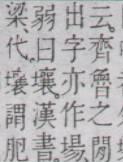 云齊魯之閒
出字亦作場
弱曰壤漢書
梁代壤謂肥